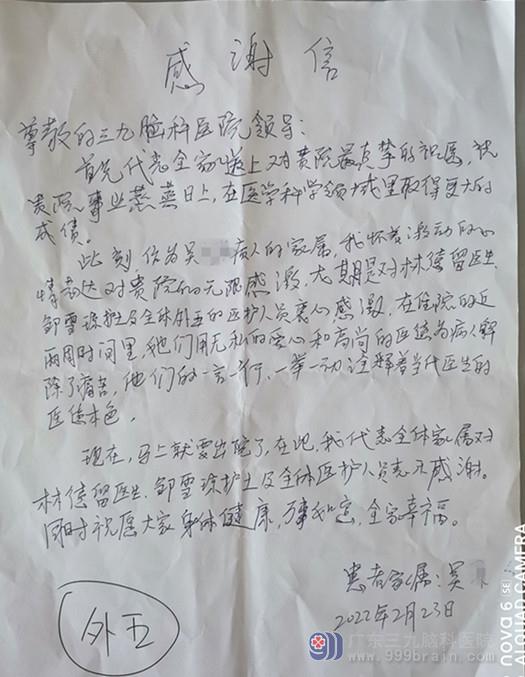 感谢信
尊敬的三九脑科医院领导:
首先代表全家送上对贵院最真挚的祝愿,祝
贵院事业蒸蒸日上,在医学科学领域里取得更大的
成绩。
此刻,作为吴 病人的家属,我怀着激动的心
情表达对贵院的无限感激,尤其是对林德留医生、
邹雪 护士及全体外五的医护人员衷心感激,在住院的近
两周时间里,他们用无私的爱心和高尚的医德为病人解
除了痛苦,他们的一言一行、一举一动诠释着当代医生的
医德本色。
现在,马上就要出院了,在此,我代表全体家属对
林德留医生、邹雪 护士及全体医护人员表示感谢。
同时祝愿大家身体健康,万事如意,全家幸福。
患者家属:吴
2022年2月23日
外五
nova 6 SE
AI QUAD CAMERA
广东三九脑科医院
www.999brain.com